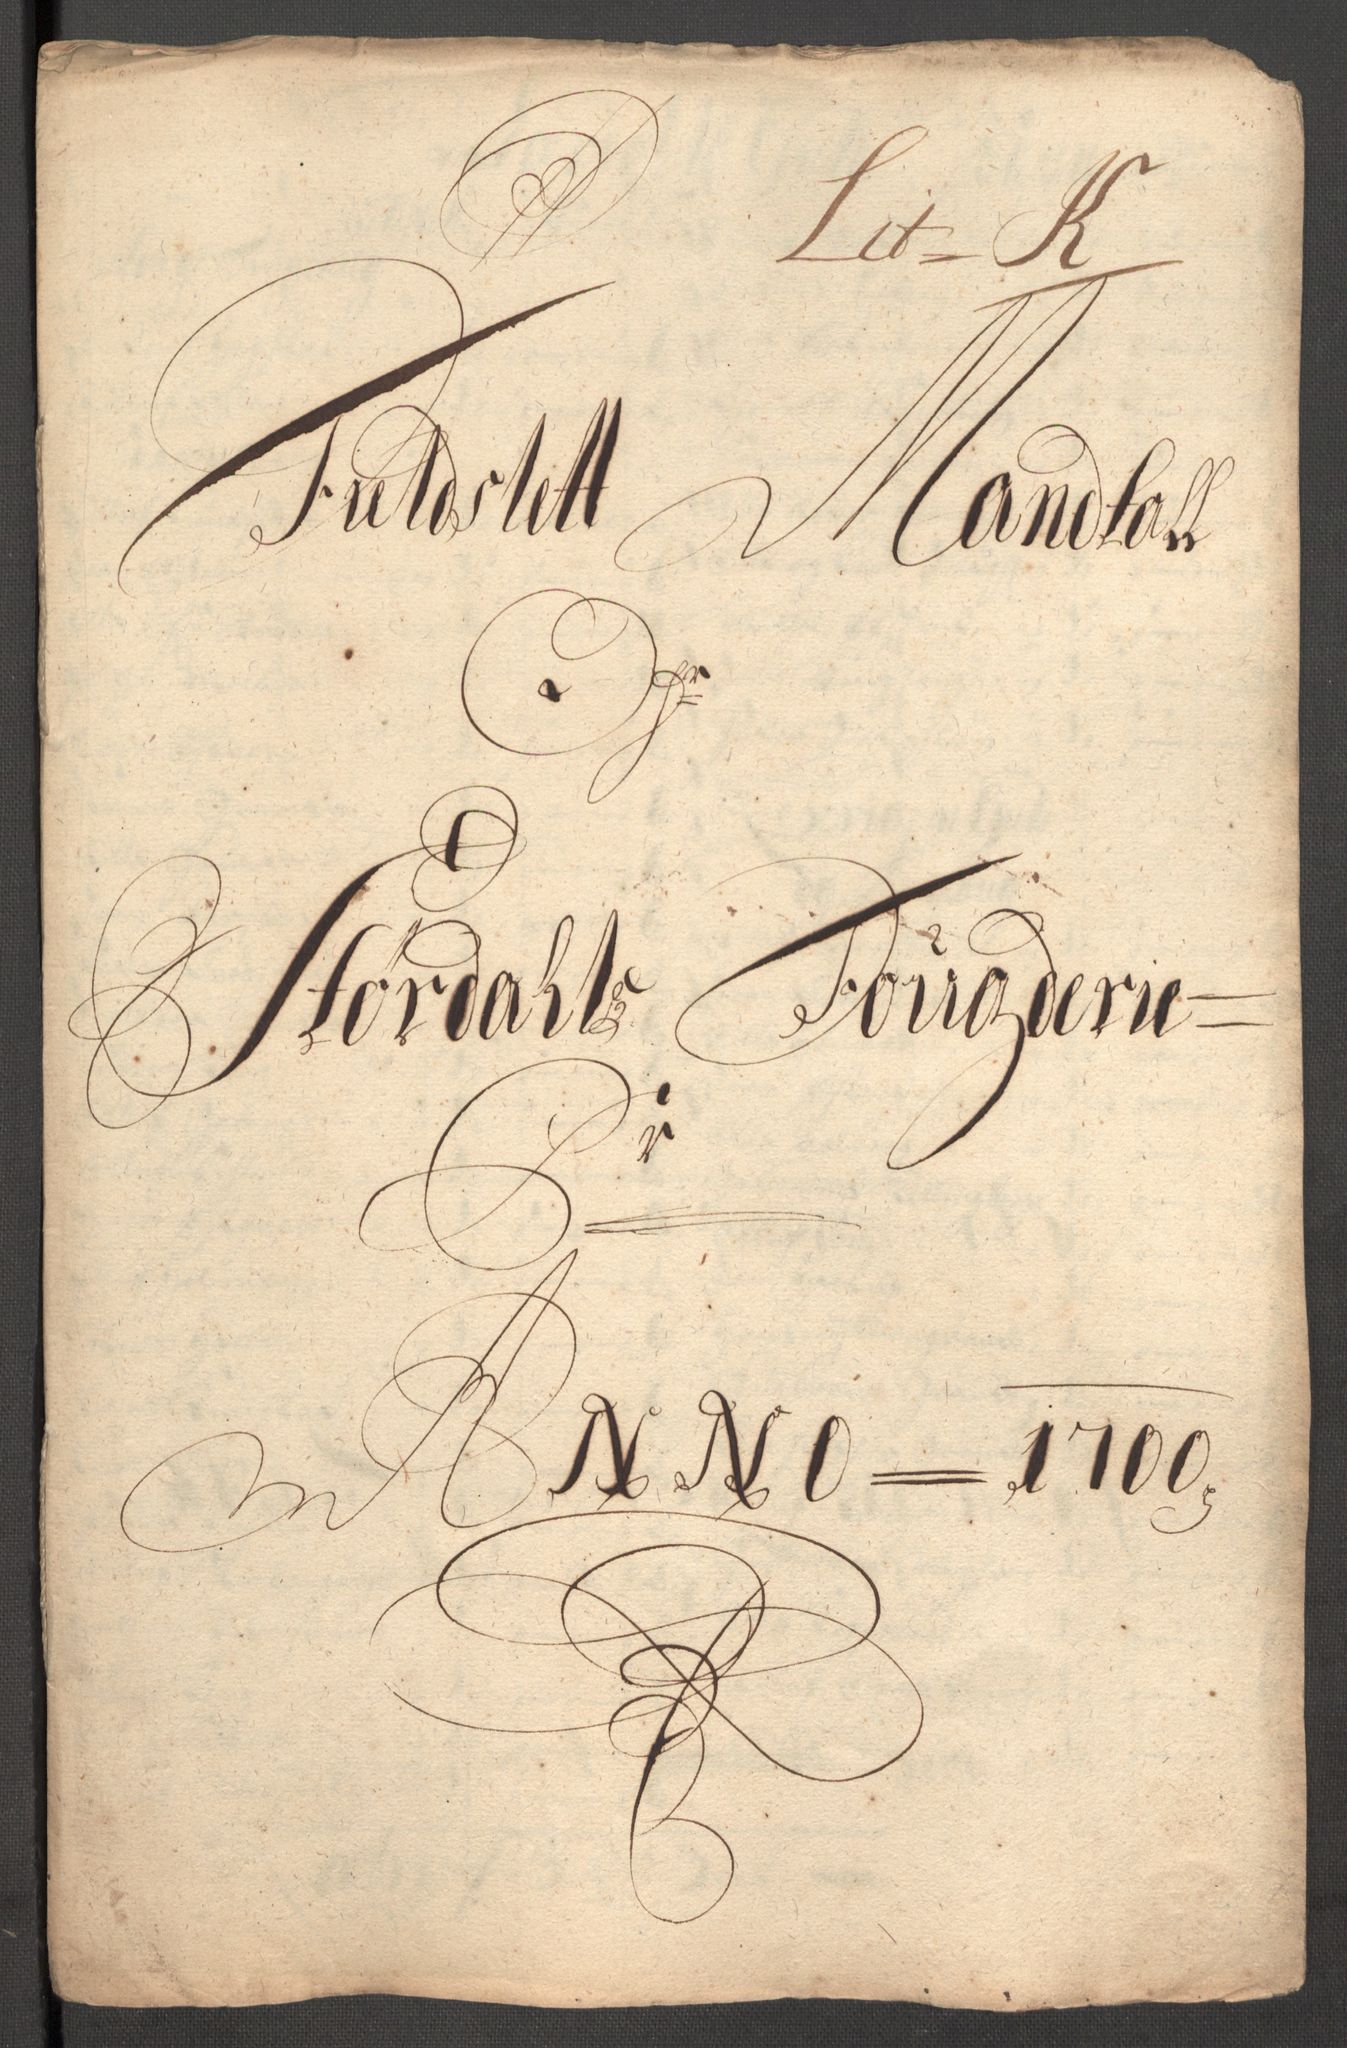 Lit= K
Fuldslett Mandtall
Ofr
Størdahls Fougderie=
Pr
ANNO = 1700